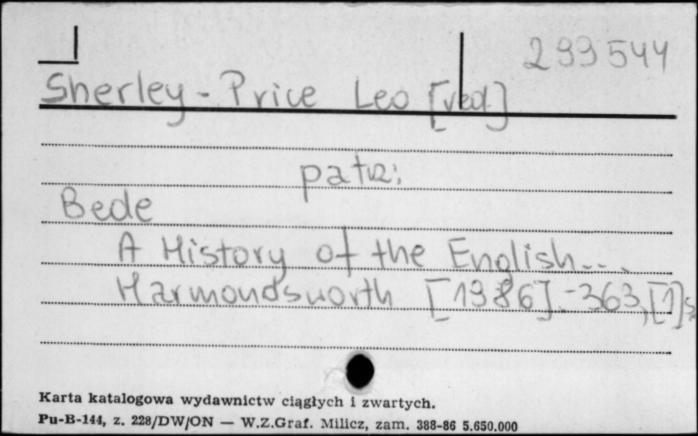 299544
Sherley-Price Leo [red.]
patrz:
Bede
A History of the English...
Harmondsworth [1986]. - 363, [1] s
Karta katalogowa wydawnictw ciągłych i zwartych.
Pu-B-144, z. 228/DW/ON — W.Z.Graf. Milicz, zam. 388-86 5.650.000